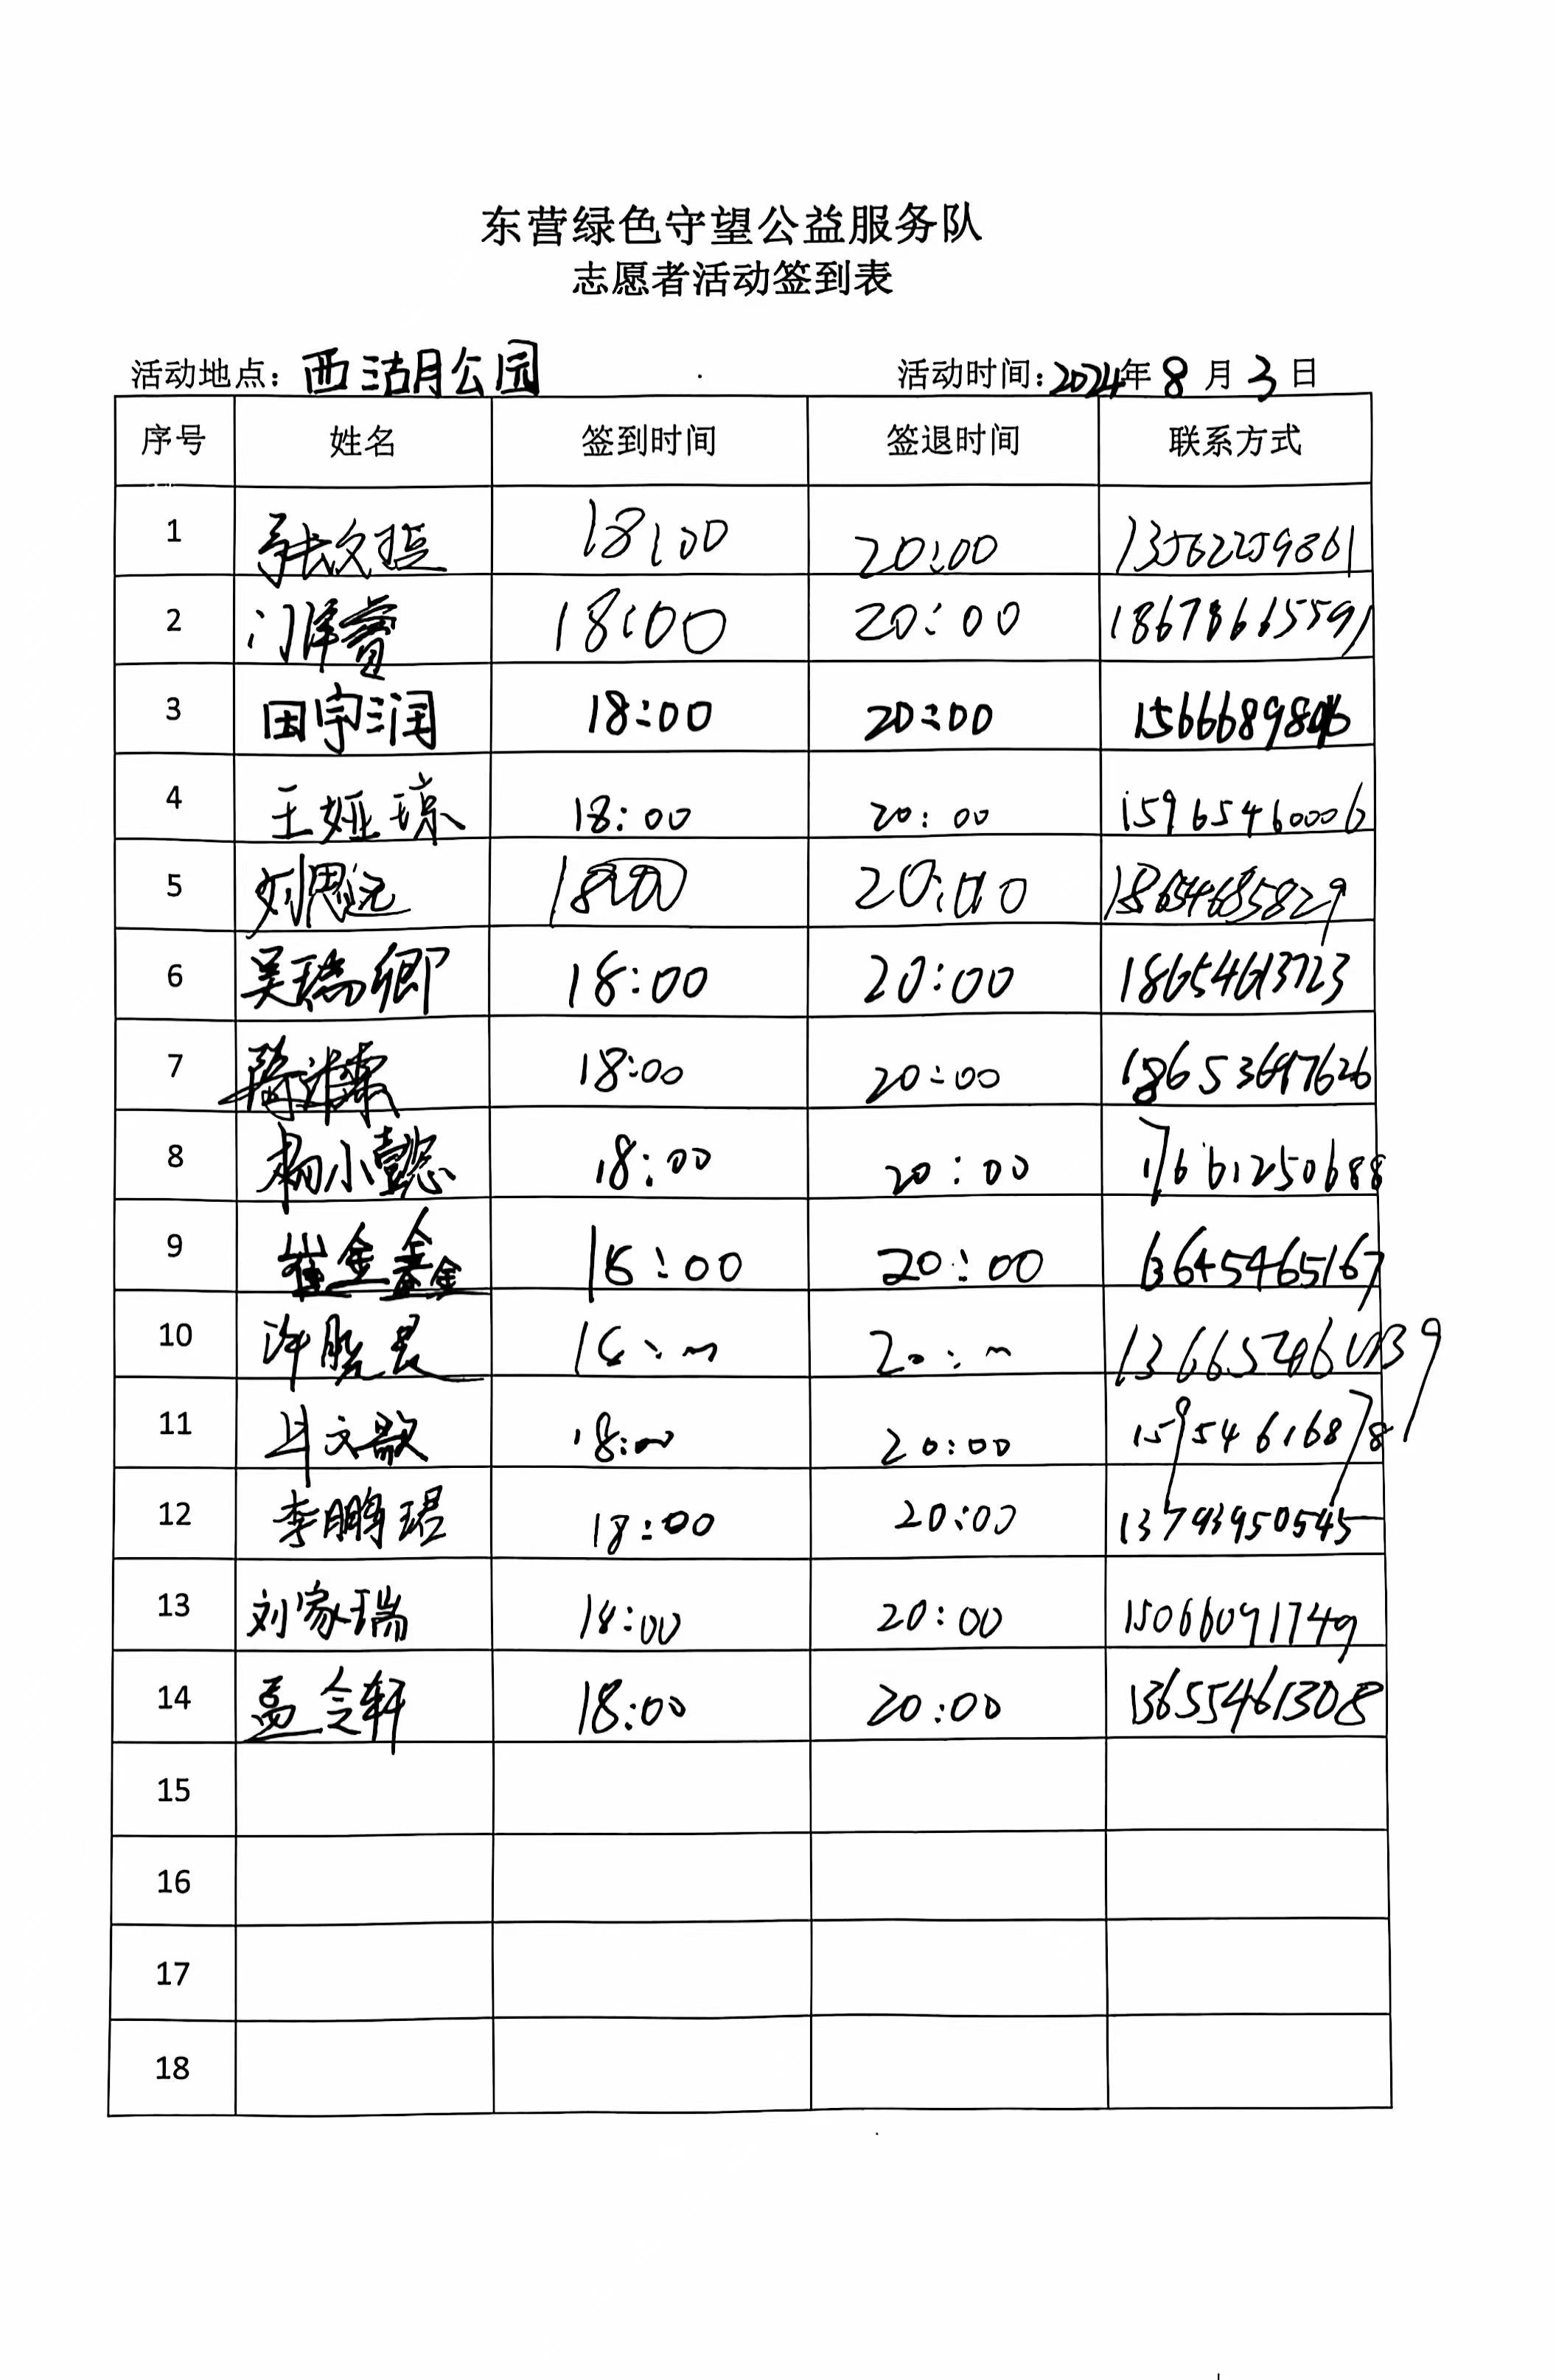 东营绿色守望公益服务队
志愿者活动签到表
活动地点：西湖公园 活动时间：2024年8月3日
序号 姓名 签到时间 签退时间 联系方式
1 张文 18:00 20:00 13562259861
2 门 18:00 20:00 18678665591
3 田宇润 18:00 20:00
4 王娅琼 18:00 20:00 15965460006
5 刘思远 18:00 20:00 18654685829
6 吴瑞卿 18:00 20:00 18654613723
7 18:00 20:00
8 杨小懿 18:00 20:00 17661250688
9 崔金鑫 18:00 20:00 13645465167
10 许 18:00 20:00
11 文歌 18:00 20:00 15954616878
12 李鹏珺 18:00 20:00 13793950545
13 刘家瑞 18:00 20:00 15066091749
14 孟令轩 18:00 20:00 13655461308
15
16
17
18